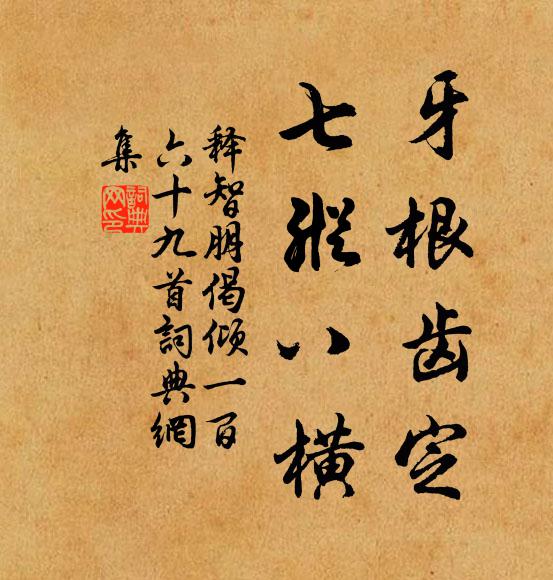 牙根齿定
七縱八横
释智朋偈倾一百
六十九首詞典網
集
詞典
网印